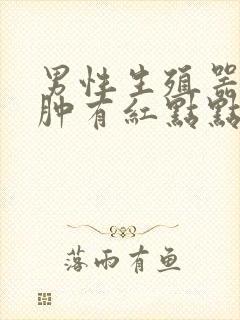 男性生殖器
肿有紅點點
落雨有鱼